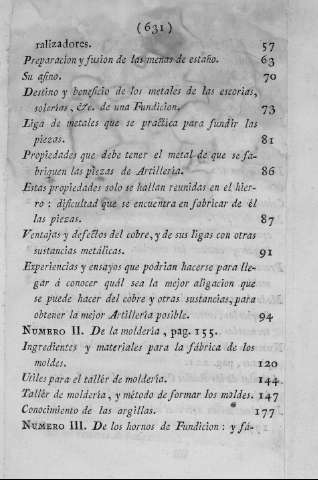 (631)
ralizadores. 57
Preparacion y fusion de las menas de estaño. 63
Su afino. 70
Destino y beneficio de los metales de las escorias,
solerías, &c. de una Fundicion. 73
Liga de metales que se practica para fundir las
piezas. 81
Propiedades que debe tener el metal de que se fa-
briquen las piezas de Artillería. 86
Estas propiedades solo se hallan reunidas en el hier-
ro: dificultad que se encuentra en fabricar de él
las piezas. 87
Ventajas y defectos del cobre, y de sus ligas con otras
sustancias metálicas. 91
Experiencias y ensayos que podrian hacerse para lle-
gar á conocer quál sea la mejor aligacion que
se puede hacer del cobre y otras sustancias, para
obtener la mejor Artillería posible. 94
NUMERO II. De la moldería, pag. 155.
Ingredientes y materiales para la fábrica de los
moldes. 120
Utiles para el tallér de moldería. 144
Tallér de moldería, y método de formar los moldes. 147
Conocimiento de las argillas. 177
NUMERO III. De los hornos de Fundicion: y fá-